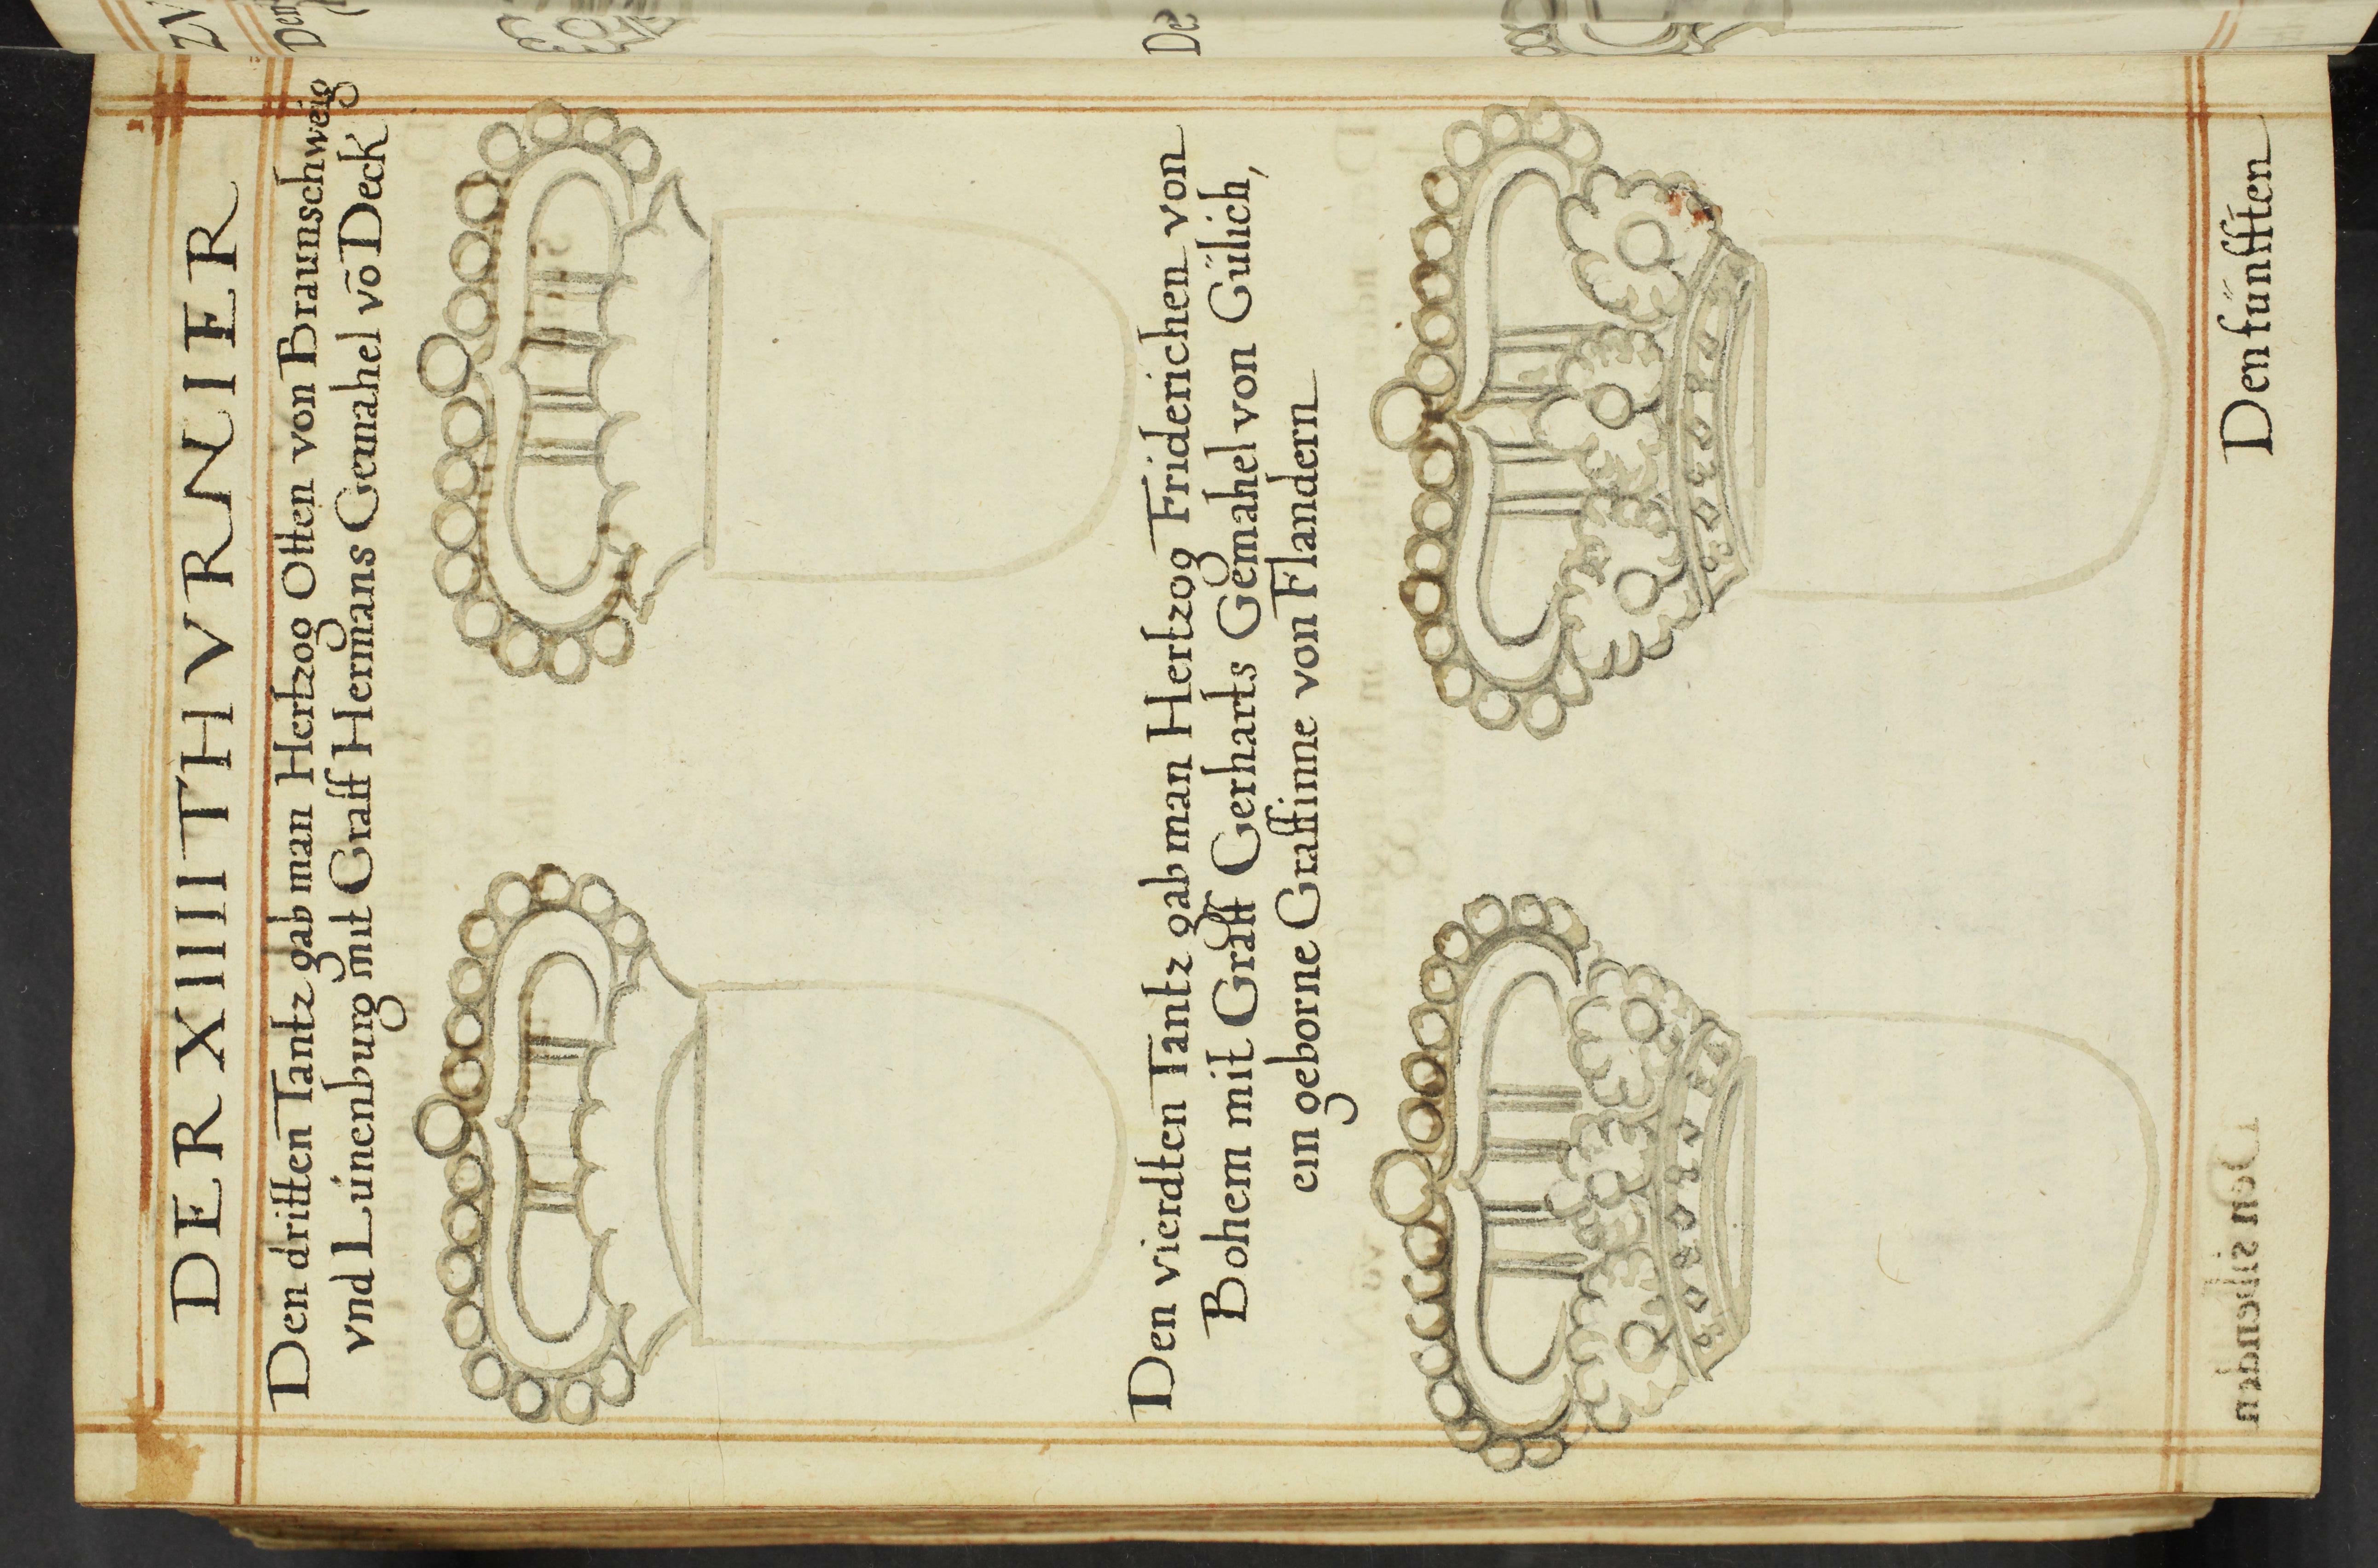 DER XIIII THVRNIER
Den dritten Tantz gab man Hertzog Otten von Braunschweig
vnd Lúnenburg mit Graff Hermans Gemahel võ Deck
Den vierdten Tantz gab man Hertzog Friderichen von
Bohem mit Graff Gerharts Gemahel von Gülich,
ein geborne Graffinne von Flandern
Den fünfften